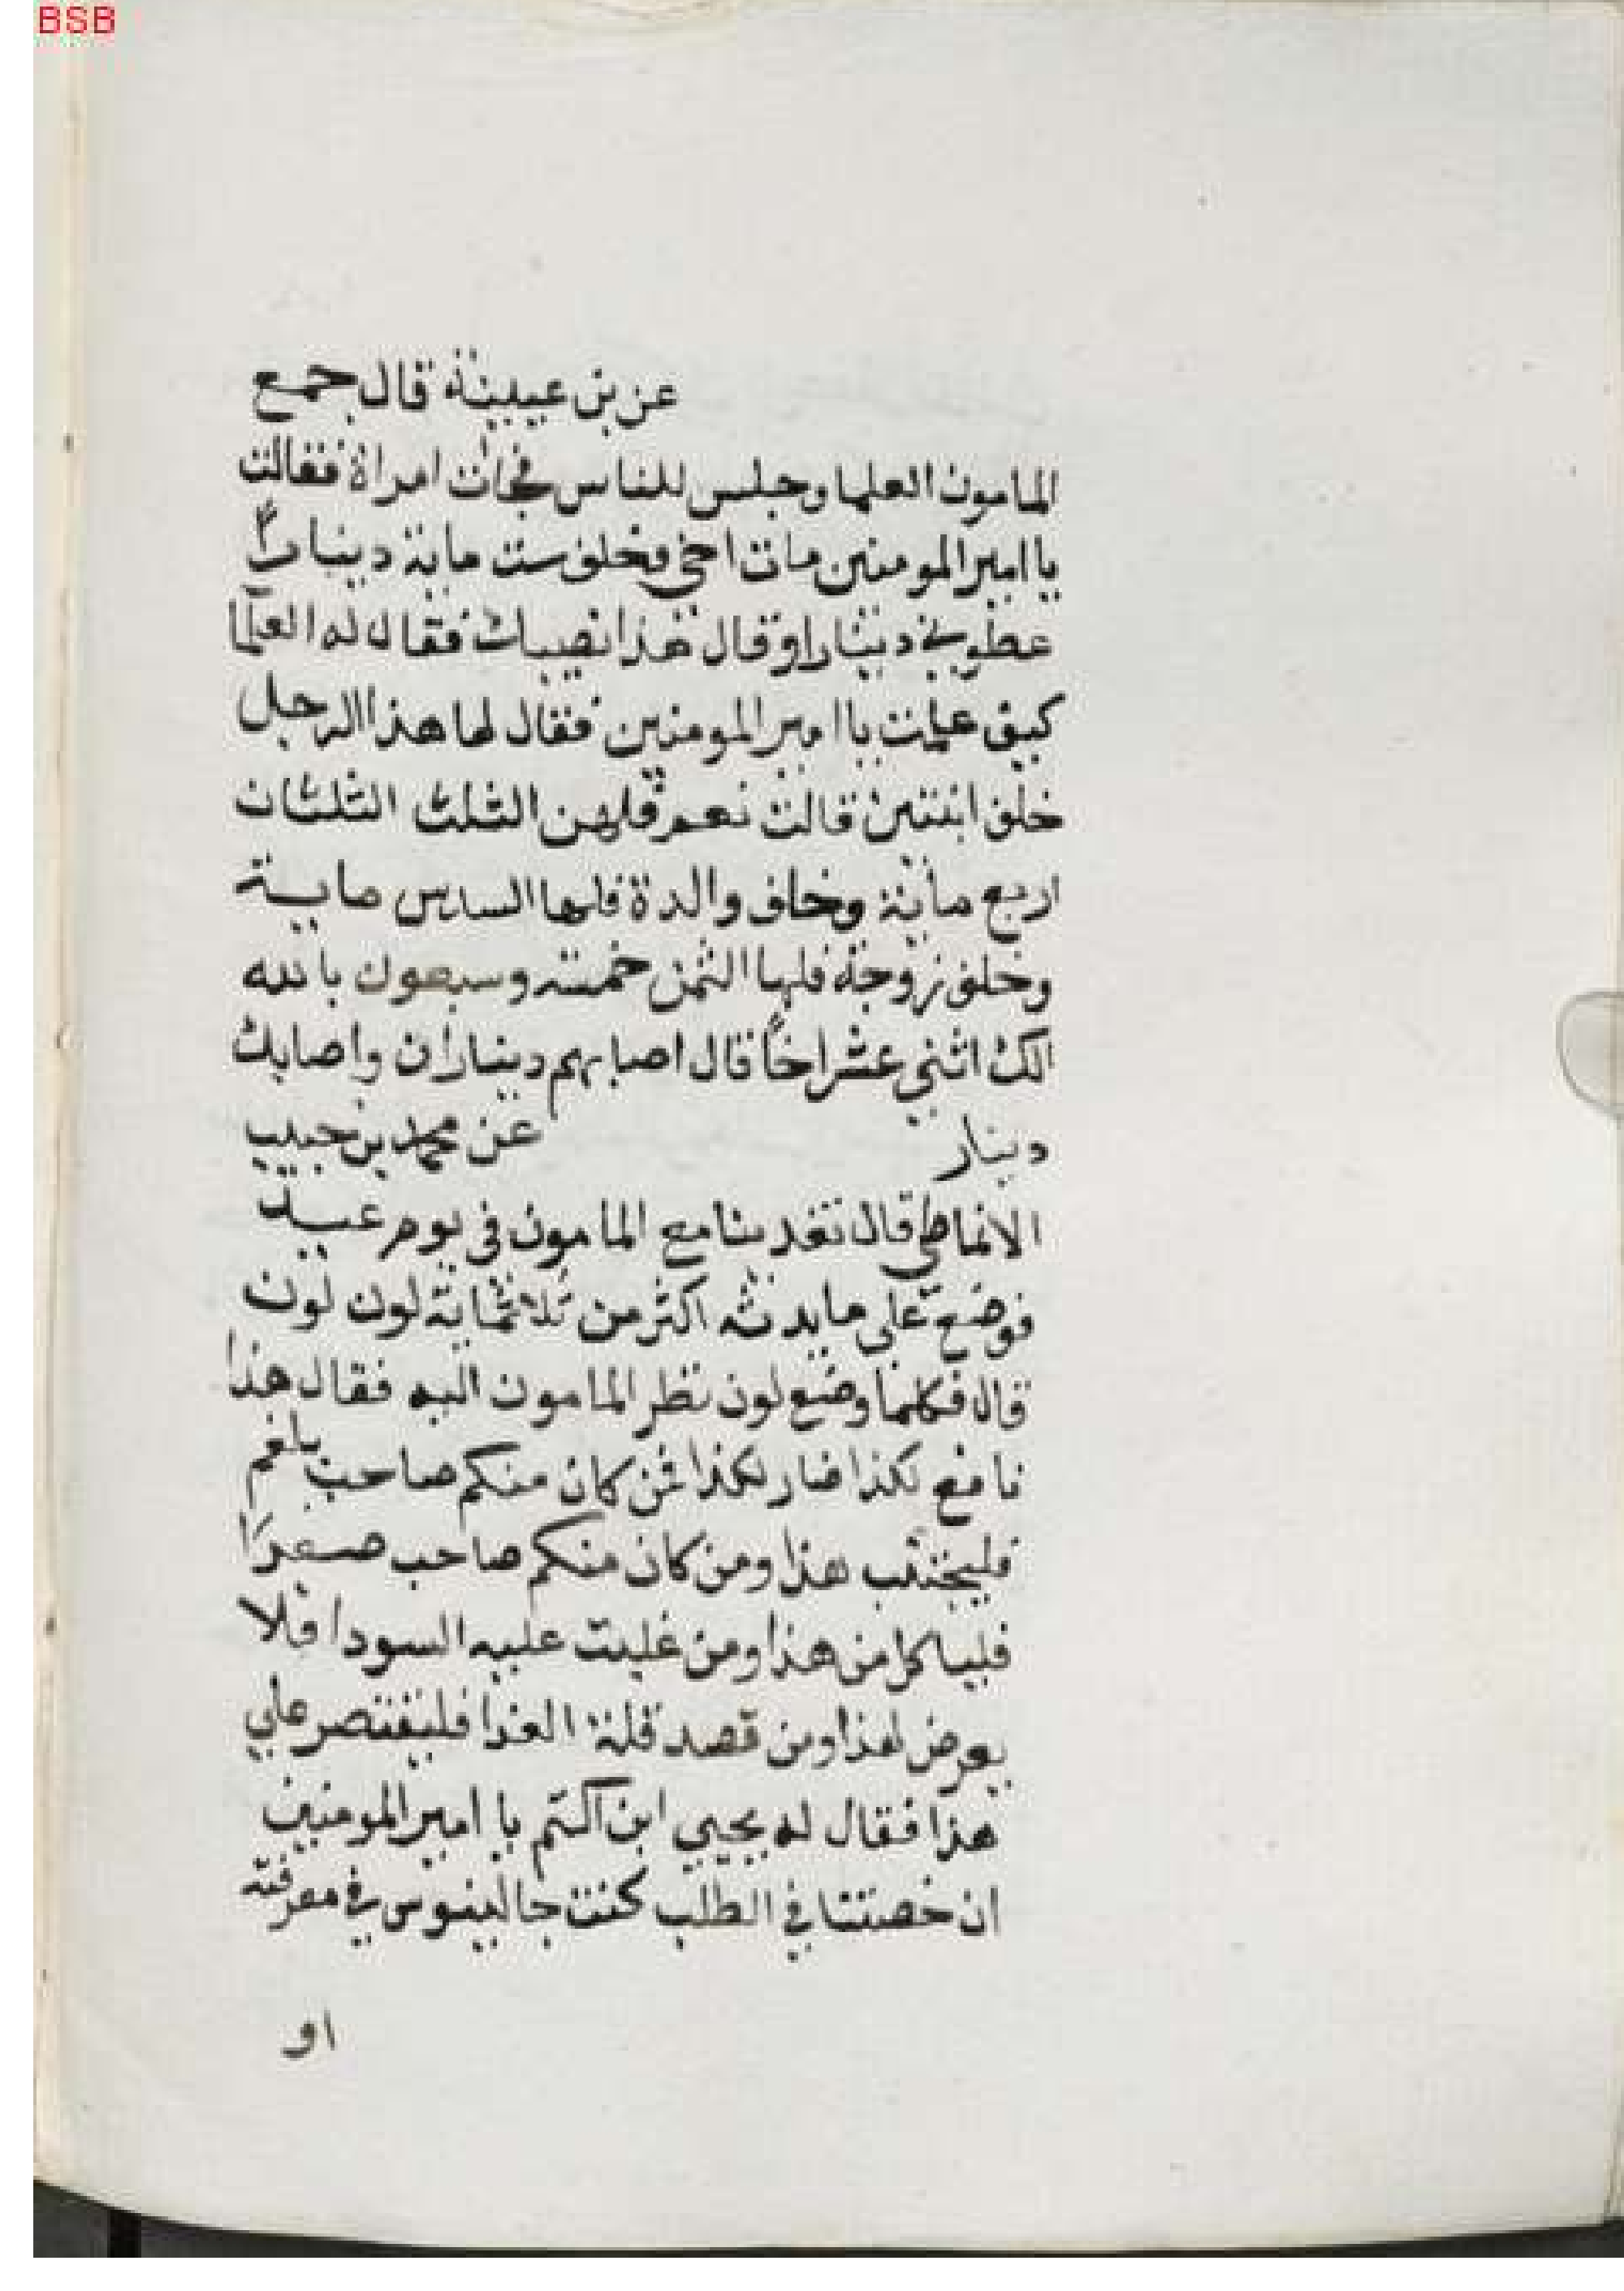 BSB
عن بن عيينة قال جمع
المامون العلما وجلس للناس فجات امراة فقالت
يا امير المومنين مات اخي وخلف ست ماية دينارًا
عطوني دينارا وقال هذا نصيبك فقال له العلما
كيف علمت يا امير المومنين فقال لها هذا الرجل
خلف ابنتين قالت نعم فلهن الثلث الثلثان
اربع ماية وخلف والدة فلها السدس ماية
وخلف زوجة فلها الثمن خمسة وسبعون بالله
الك اثني عشر اخًا قال اصابهم ديناران واصابك
دينار عن محمد بن حبيب
الانماطي قال تغدينا مع المامون في يوم عيد
فوضع على مايدته اكثر من ثلاثماية لون لون
قال فكلما وضع لون نظر المامون اليه فقال هذا
نافع لكذا ضار لكذا فمن كان منكم صاحب بلغم
فليجتنب هذا ومن كان منكم صاحب صفرَا
فلياكل من هذا ومن غلبت عليه السودا فلا
يعرض لهذا ومن قصد قلة الغذا فليقتصر علي
هذا فقال له يحيي ابن اكثم يا امير المومنين
ان خضنا في الطب كنت جالينوس في معرفته
او